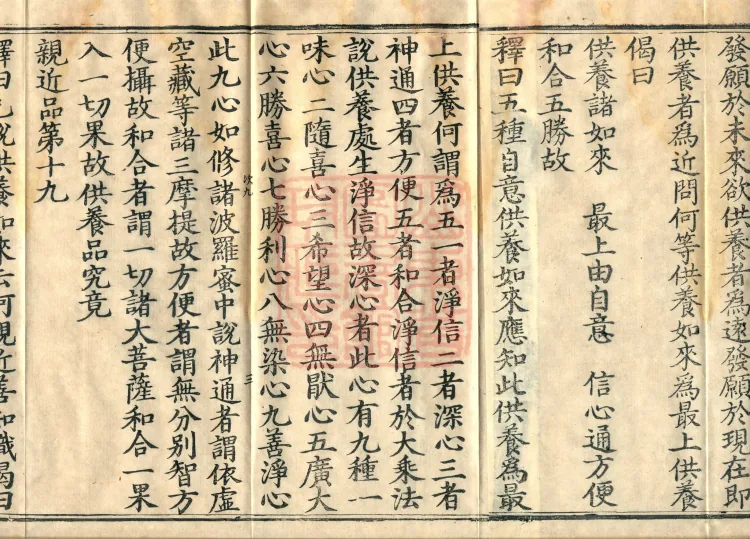 發願於未來欲供養者為遠發願於現在即
供養者為近問何等供養如來為最上供養
偈曰
供養諸如來　最上由自意　信心通方便
和合五勝故
釋曰五種自意供養如來應知此供養為最
上供養何謂為五一者淨信二者深心三者
神通四者方便五者和合淨信者於大乘法
說供養處生淨信故深心者此心有九種一
味心二隨喜心三希望心四無猒心五廣大
心六勝喜心七勝利心八無染心九善淨心
此九心如修諸波羅蜜中說神通者謂依虛
空藏等諸三摩提故方便者謂無分別智方
便攝故和合者謂一切諸大菩薩和合一果
入一切果故供養品究竟
親近品第十九
釋曰已說供養如來云何親近善知識偈曰
三